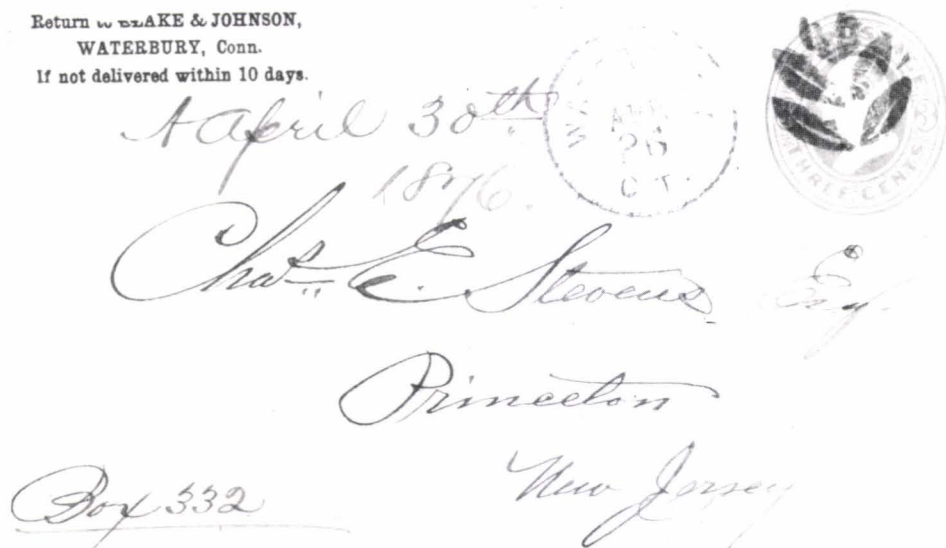 Return to BLAKE & JOHNSON,
WATERBURY, Conn.
If not delivered within 10 days.
April 30th
1876.
APR
20
CT.
THREE CENTS
Chas. E. Stevens Esq.
Princeton
New Jersey
Box 332